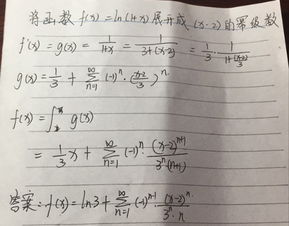 将函数 f(x) = ln(1+x) 展开成 (x-2) 的幂级数
f'(x) = g(x) = \frac{1}{1+x} = \frac{1}{3+(x-2)} = \frac{1}{3} \cdot \frac{1}{1+(\frac{x-2}{3})}
g(x) = \frac{1}{3} + \sum_{n=1}^{\infty} (-1)^n \cdot (\frac{x-2}{3})^n
f(x) = \int_{2}^{x} g(x)
= \frac{1}{3} x + \sum_{n=1}^{\infty} (-1)^n \cdot \frac{(x-2)^{n+1}}{3^n \cdot (n+1)}
答案: f(x) = ln3 + \sum_{n=1}^{\infty} (-1)^{n-1} \cdot \frac{(x-2)^n}{3^n \cdot n}